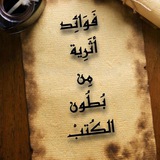 فَوَائِد
أثرية
مِن
بُطُون
الكُتبْ